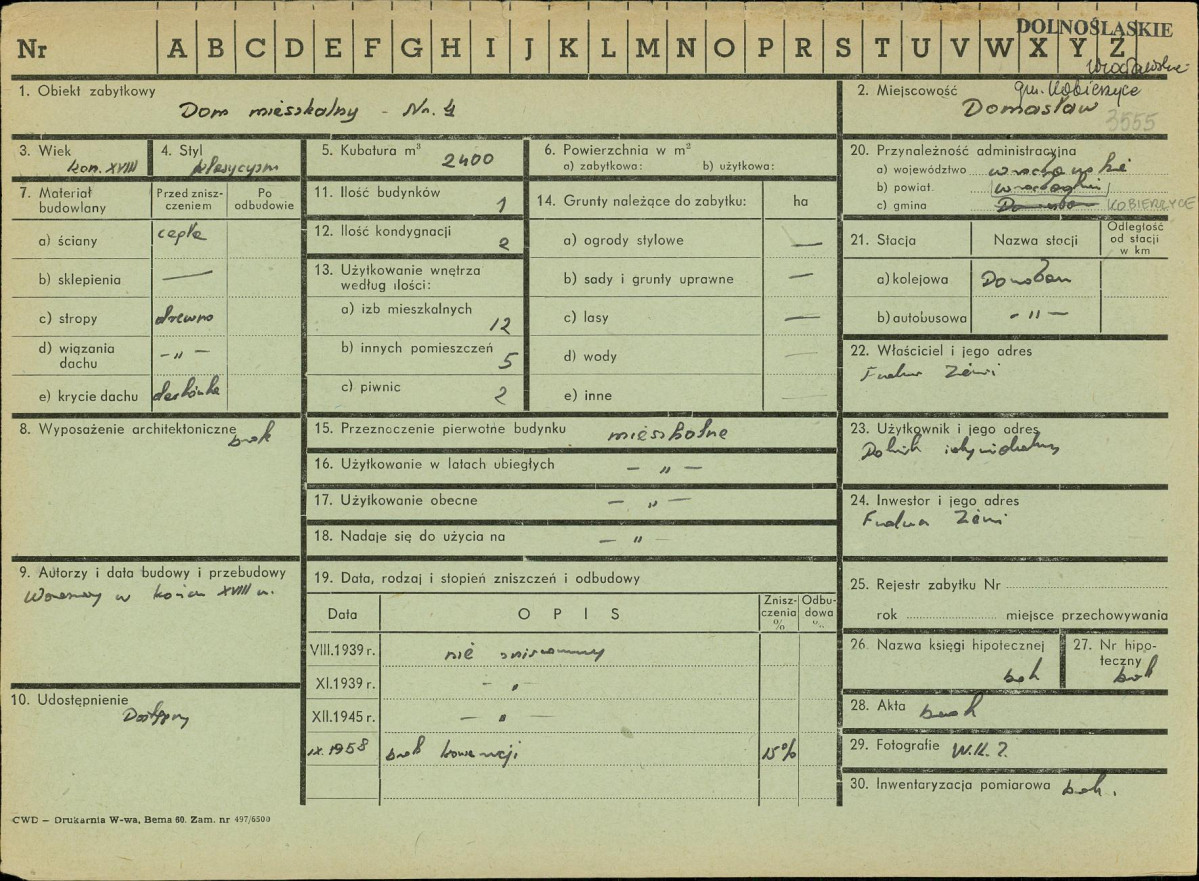 DOLNOŚLĄSKIE
Nr A B C D E F G H I J K L M N O P R S T U V W X Y Z
1. Obiekt zabytkowy
Dom mieszkalny - Nr. 4
2. Miejscowość gm. Kobierzyce
Domasław
3555
3. Wiek
kon. XVIII
4. Styl
klasycyzm
5. Kubatura m³ 2400
6. Powierzchnia w m²
a) zabytkowa: b) użytkowa:
7. Materiał budowlany
Przed zniszczeniem
Po odbudowie
a) ściany cegła
b) sklepienia —
c) stropy drewno
d) wiązania dachu - " -
e) krycie dachu dachówka
8. Wyposażenie architektoniczne
brak
9. Autorzy i data budowy i przebudowy
w końcu XVIII w.
10. Udostępnienie
Dostępny
11. Ilość budynków 1
12. Ilość kondygnacji 2
13. Użytkowanie wnętrza
według ilości:
a) izb mieszkalnych 12
b) innych pomieszczeń 5
c) piwnic 2
14. Grunty należące do zabytku: ha
a) ogrody stylowe —
b) sady i grunty uprawne —
c) lasy —
d) wody —
e) inne —
15. Przeznoczenie pierwotne budynku mieszkalne
16. Użytkowanie w latach ubiegłych - " -
17. Użytkowanie obecne - " -
18. Nadaje się do użycia na - " -
19. Data, rodzaj i stopień zniszczeń i odbudowy
Data OPIS Zniszczenia % Odbudowa %
VIII.1939 r. nie zniszczony
XI.1939 r. - " -
XII.1945 r. - " -
IX.1958 brak konserwacji 15%
20. Przynależność administracyjna
a) województwo wrocławskie
b) powiat. wrocławski
c) gmina KOBIERZYCE
21. Stacja Nazwa stacji Odległość od stacji w km
a) kolejowa
b) autobusowa - " -
22. Właściciel i jego adres
Fundusz Ziemi
23. Użytkownik i jego adres
24. Inwestor i jego adres
Fundusz Ziemi
25. Rejestr zabytku Nr
rok miejsce przechowywania
26. Nazwa księgi hipotecznej
brak
27. Nr hipoteczny
brak
28. Akta brak
29. Fotografie W.K.Z.
30. Inwentaryzacja pomiarowa brak.
CWD — Drukarnia W-wa, Bema 60. Zam. nr 497/6500